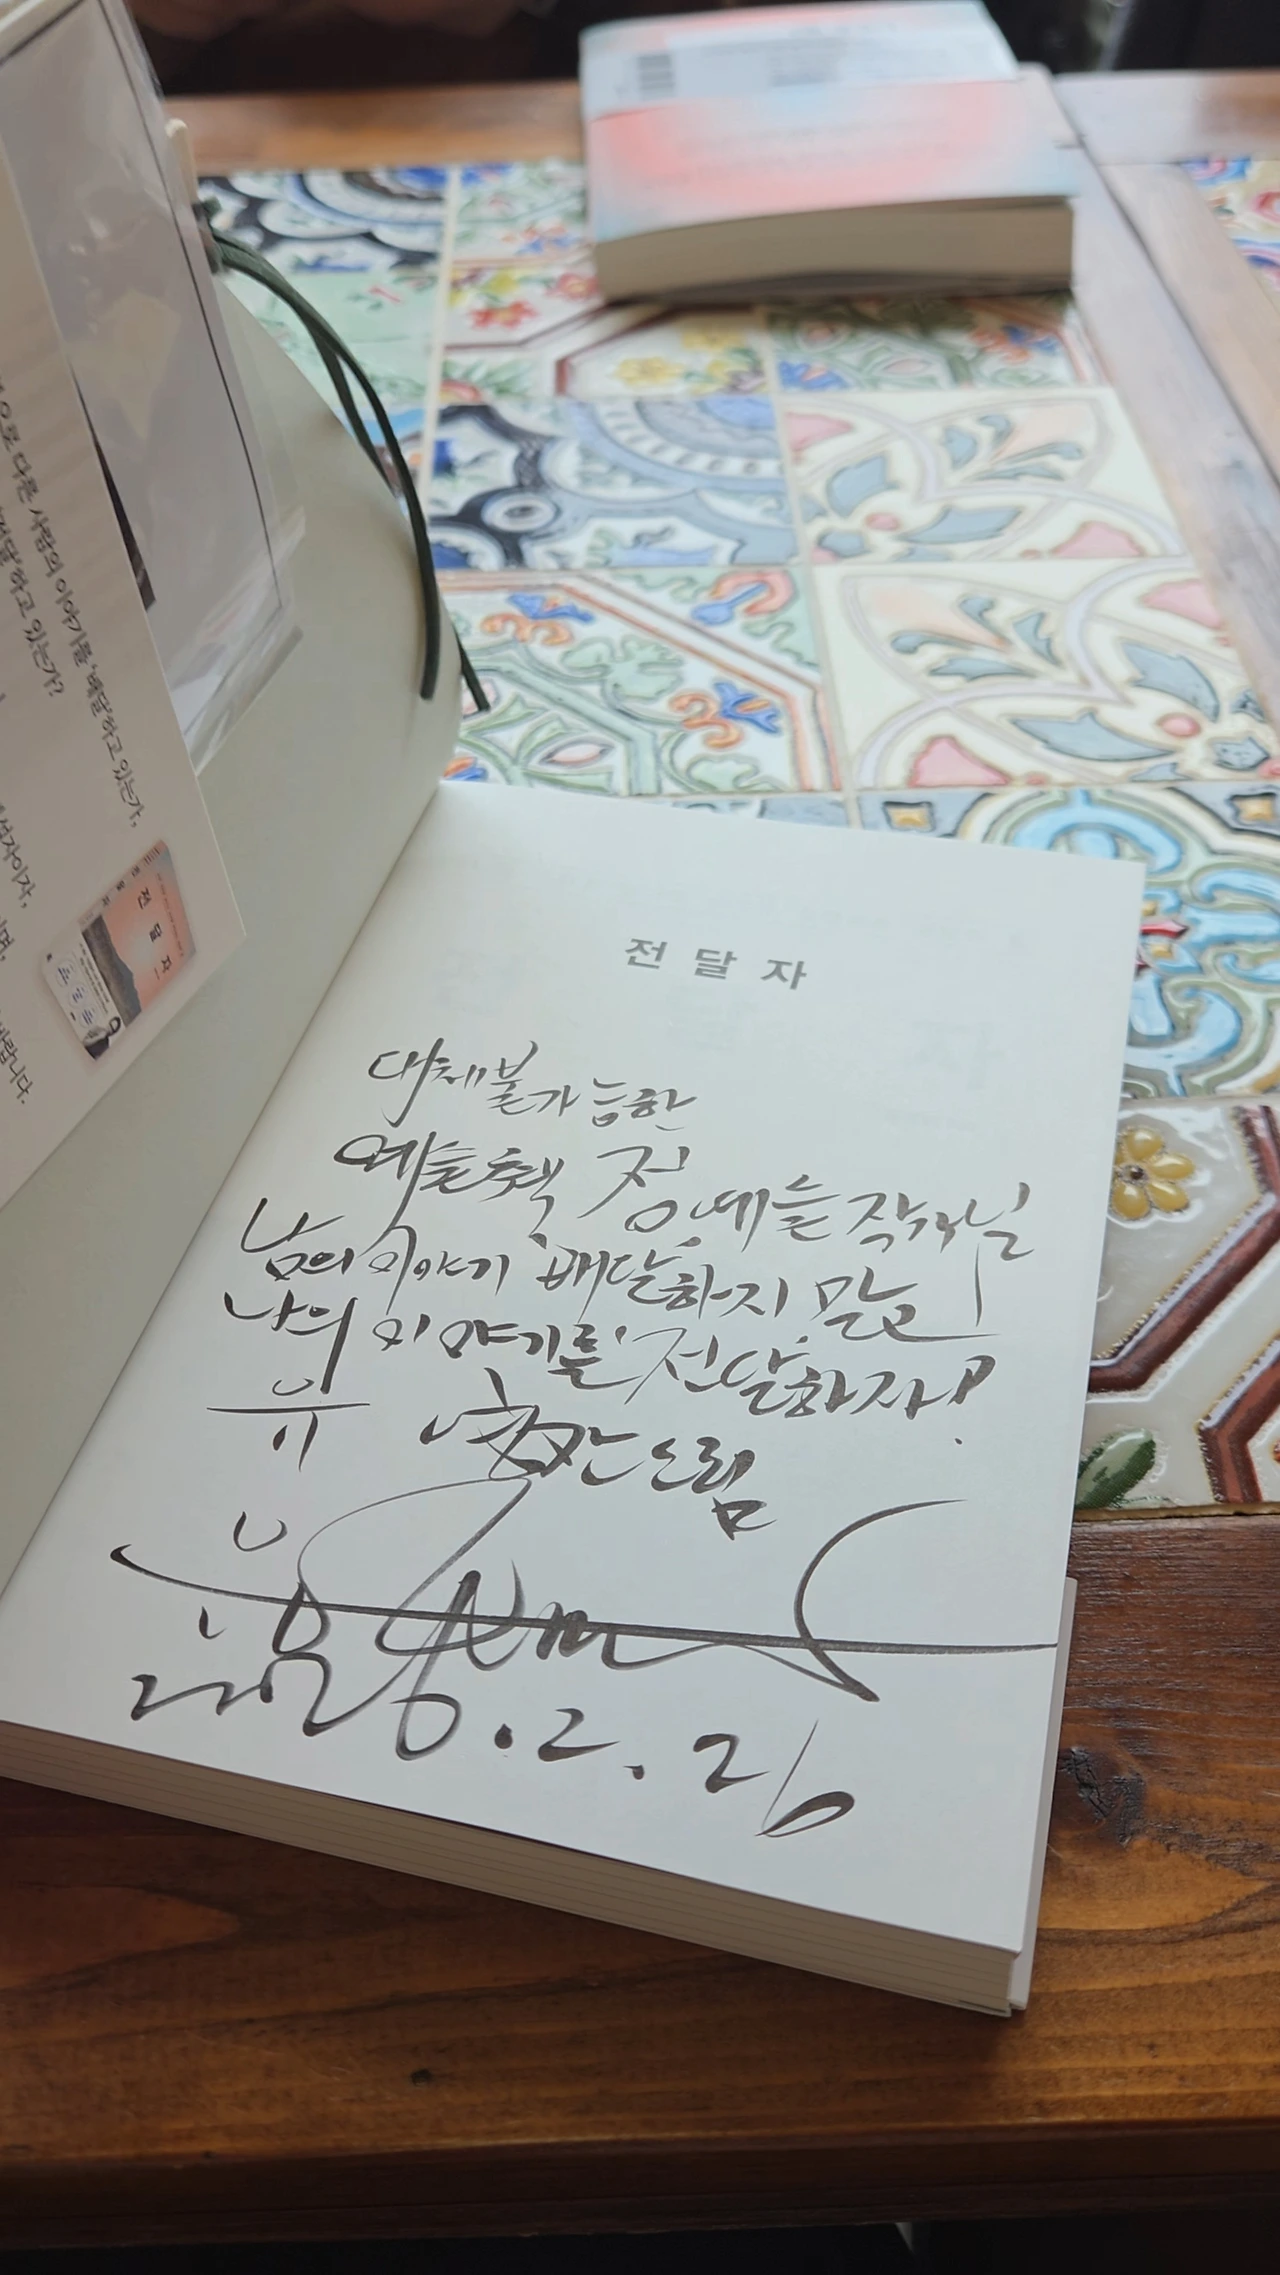 으로 다른 사람의 이야기를 '배달'하고 있는가,
'전달'하고 있는가?
전달자
전 달 자
대체불가능한
예슬책 정예슬 작가님
남의 이야기 '배달'하지 말고
나의 이야기를 '전달'하자!
드림
.2.26